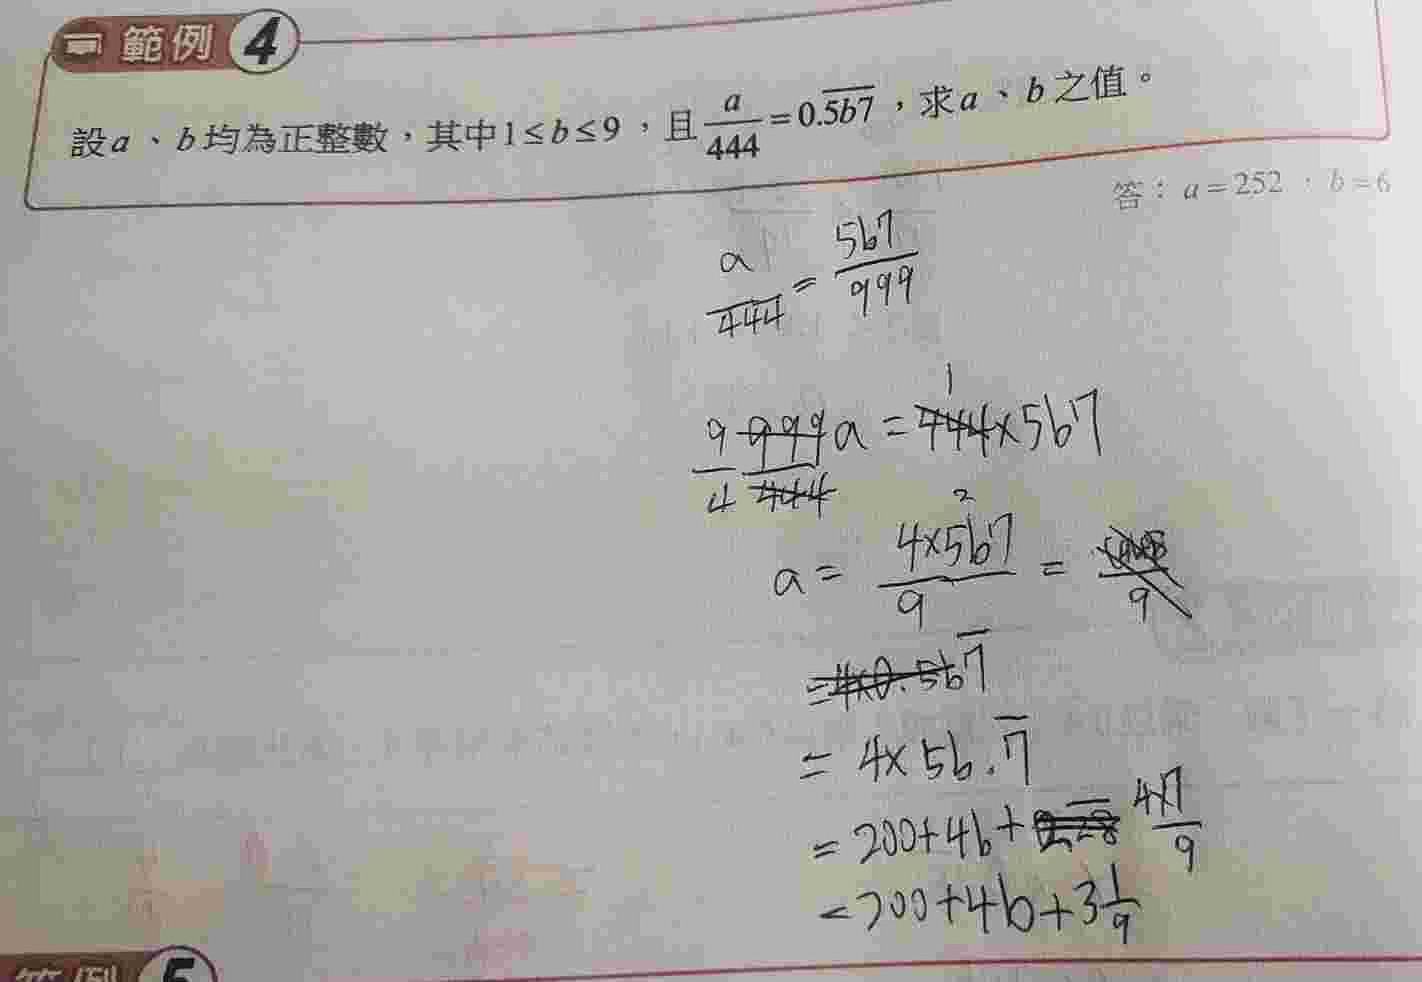 範例 4
設a、b均為正整數,其中1≤b≤9,且a/444=0.\overline{5b7},求a、b之值。
答:a=252,b=6
a/444 = 5b7/999
9/4 999/444 a = 444×5b7
1
a = 4×5b7/9 = /9
2
=4×0.5b\overline{7}
= 4×5b.\overline{7}
= 200+4b+ 4×7/9
=200+4b+3 1/9
範例 5